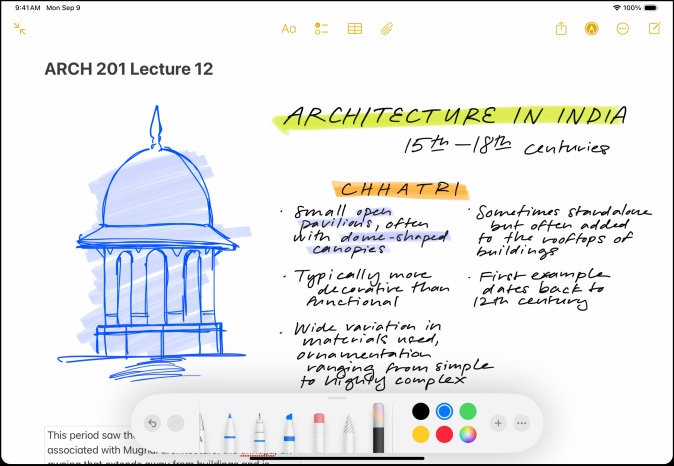 9:41AM Mon Sep 9
100%
Aa
ARCH 201 Lecture 12
ARCHITECTURE IN INDIA
15th – 18th centuries
CHHATRI
· Small open
pavilions, often
with dome-shaped
canopies
· Typically more
decorative than
functional
· Wide variation in
materials used,
ornamentation
ranging from simple
to highly complex
· Sometimes standalone
but often added
to the rooftops of
buildings
· First example
dates back to
12th century
This period saw th
associated with Mugha